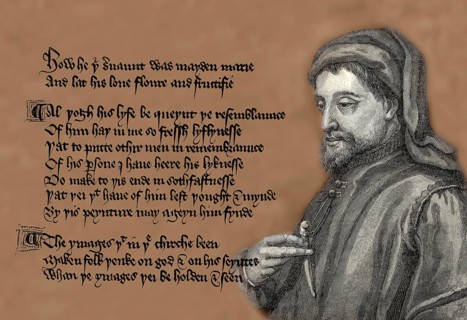 How he þͥ s̃uaunt was mayden marie
And lat his loue floure and fructifie
Al þogh his lyfe be queynt þe resemblaunce
Of him haþ in me so fressh lyflynesse
Þat to putte othir men in remembraunce
Of his ꝑsone I haue heere his lyknesse
Do make to þis ende in sothfastnesse
Þat þei þͭ haue of him left þought & mynde
By þis peynture may ageyn him fynde
The ymages þͭ in þͤ chirche been
Maken folk þenke on god & on his seyntes
Whan þe ymages þei be holden & seen